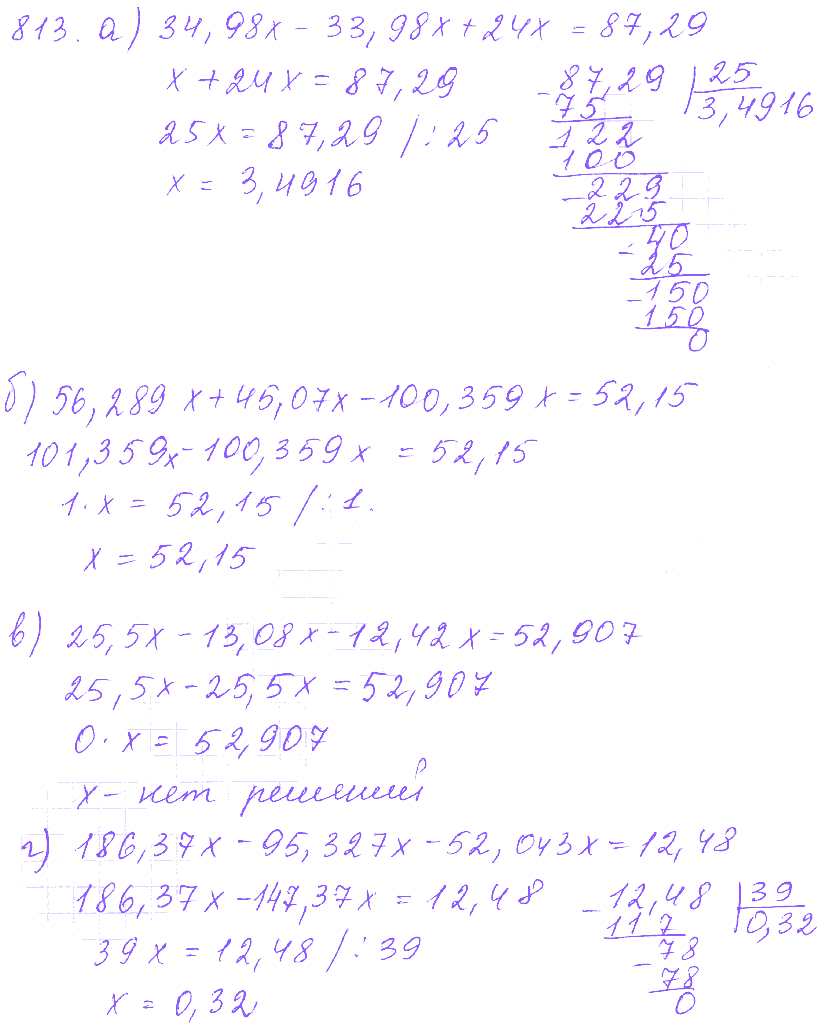 813. а) 34,98х - 33,98х + 24х = 87,29
х + 24х = 87,29
25х = 87,29 / : 25
х = 3,4916
- 87,29 | 25
75 3,4916
- 122
100
- 229
225
- 40
25
- 150
150
0
б) 56,289 х + 45,07х - 100,359 х = 52,15
101,359х - 100,359 х = 52,15
1 · х = 52,15 / : 1.
х = 52,15
в) 25,5х - 13,08х - 12,42 х = 52,907
25,5х - 25,5х = 52,907
0 · х = 52,907
х - нет решений
г) 186,37х - 95,327х - 52,043х = 12,48
186,37х - 147,37х = 12,48
39 х = 12,48 / : 39
х = 0,32
- 12,48 | 39
117 0,32
- 78
78
0